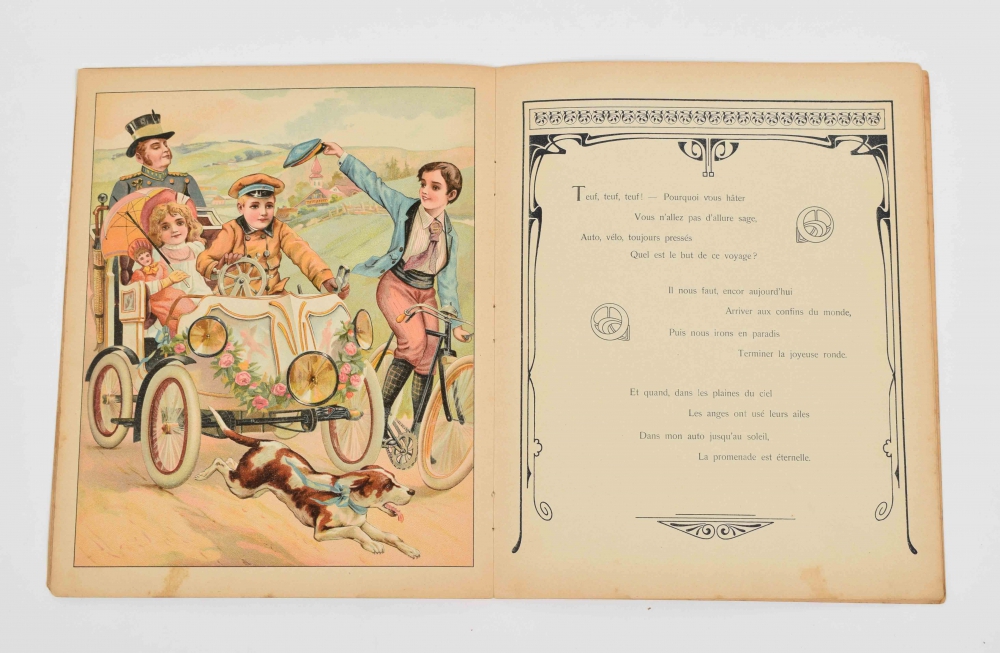 Teuf, teuf, teuf! — Pourquoi vous hâter
Vous n'allez pas d'allure sage,
Auto, vélo, toujours pressés
Quel est le but de ce voyage?
Il nous faut, encor aujourd'hui
Arriver aux confins du monde,
Puis nous irons en paradis
Terminer la joyeuse ronde.
Et quand, dans les plaines du ciel
Les anges ont usé leurs ailes
Dans mon auto jusqu'au soleil,
La promenade est éternelle.